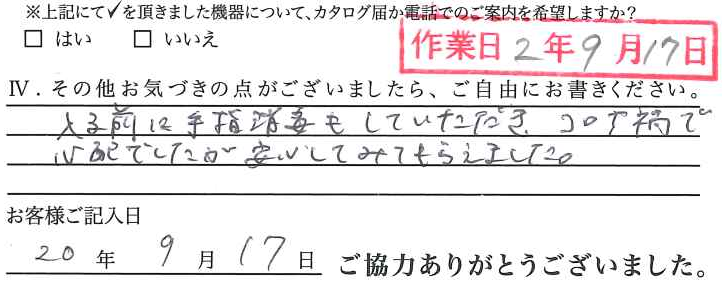 ※上記にて✓を頂きました機器について、カタログ届か電話でのご案内を希望しますか?
□ はい □ いいえ
作業日 2年9月17日
Ⅳ．その他お気づきの点がございましたら、ご自由にお書きください。
入る前に手指消毒もしていただき、コロナ禍で
心配でしたが安心してみてもらえました。
お客様ご記入日
20年 9月17日 ご協力ありがとうございました。